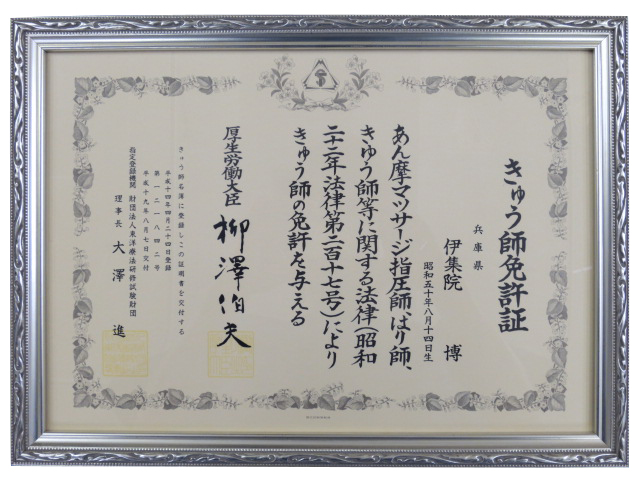 きゅう師免許証
兵庫県
伊集院 博
昭和五十年八月十四日生
あん摩マツサージ指圧師、はり師、
きゆう師等に関する法律（昭和
二十二年法律第二百十七号）により
きゅう師の免許を与える
厚生労働大臣 柳澤伯夫
きゅう師名簿に登録しこの証明書を交付する
平成十四年四月二十四日登録
第一二一八四二号
平成十九年八月七日交付
指定登録機関 財団法人東洋療法研修試験財団
理事長 大澤 進